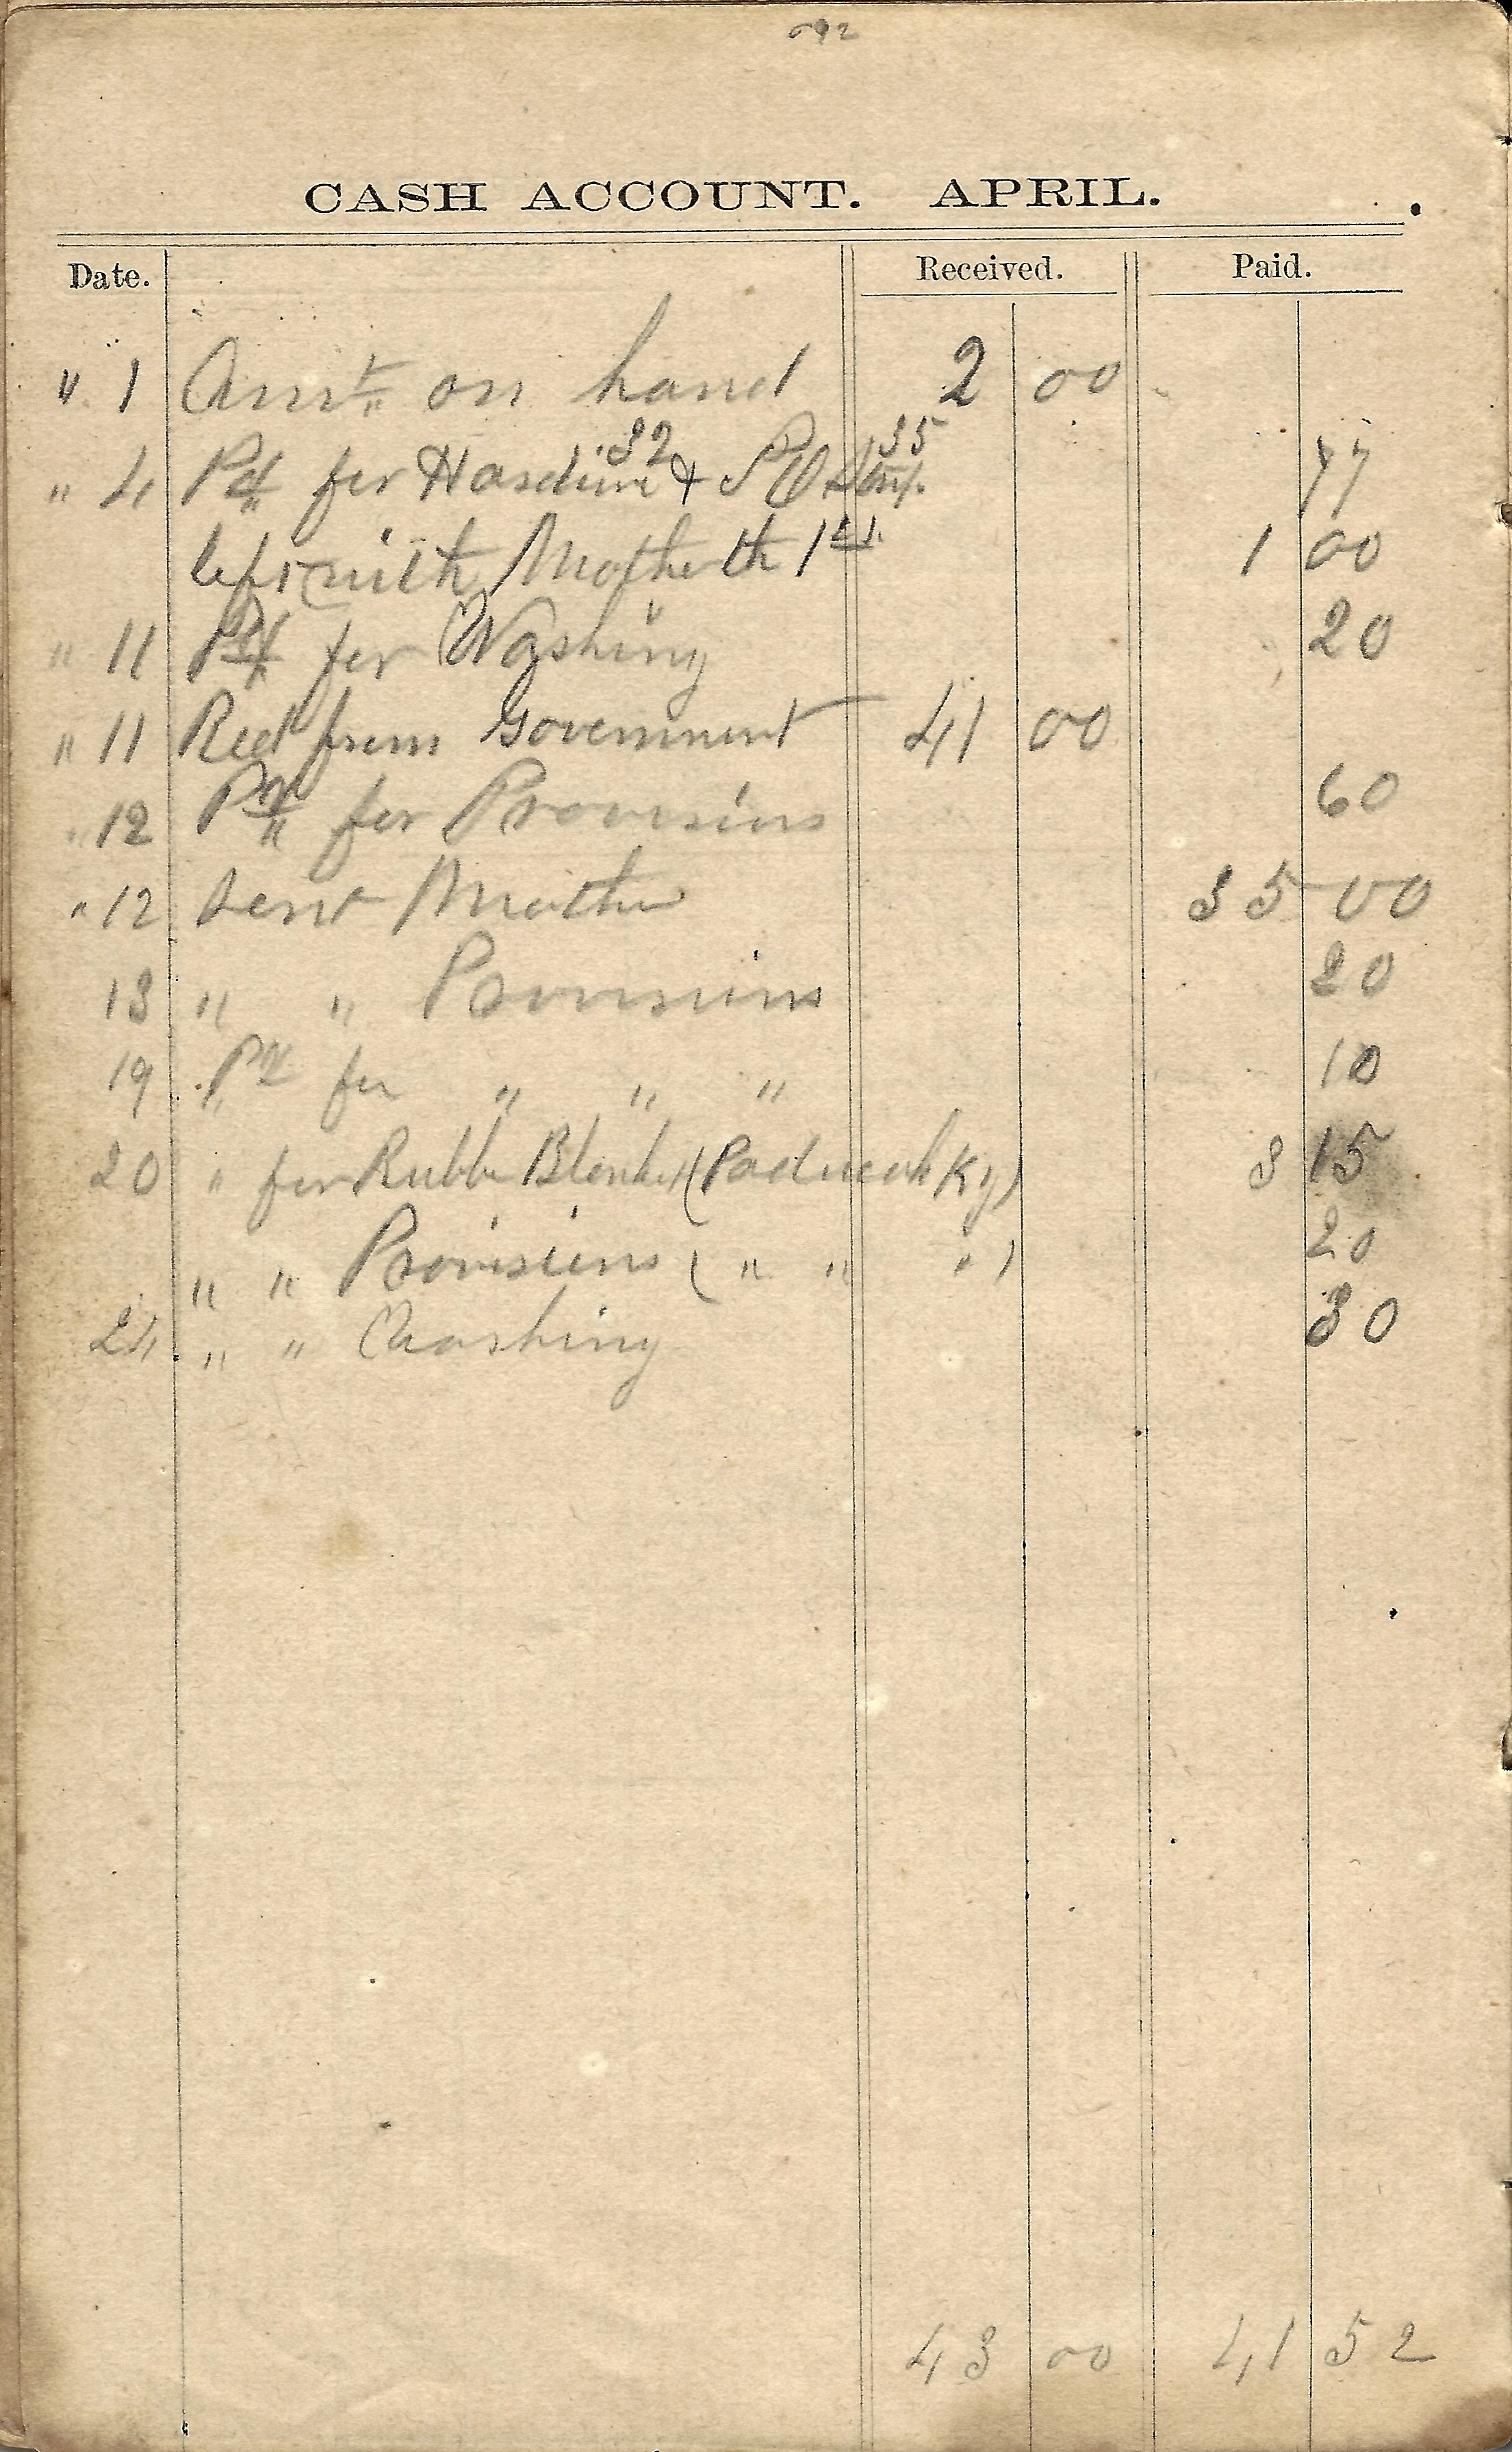 CASH ACCOUNT. APRIL.
Date. Received. Paid.
" 1 Amt on hand 2 00
32 35
" 4 Pd for & P O Stmp. 77
left with Mother th 1st. 1 00
" 11 Pd for Washing 20
" 11 Recd from Government 41 00
" 12 Pd for Provisions 60
" 12 Sent Mother 35 00
13 " " Provisions 20
19 Pd for " " " 10
20 " for Rubbe Blanket (Paducah Ky) 3 15
" " Provisions ( " " " ) 20
24 " " Washing 30
43 00 41 52